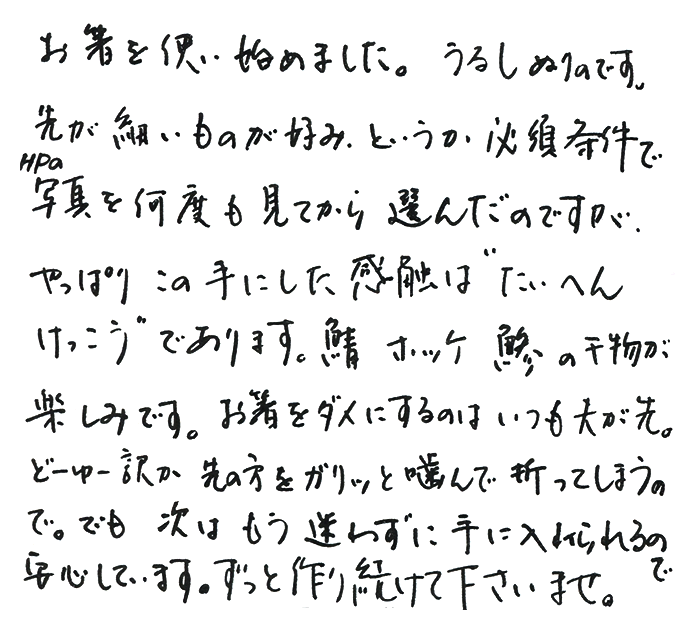 お箸を使い始めました。うるしぬりのです。
先が細いものが好み、というか必須条件で
HPの
写真を何度も見てから選んだのですが、
やっぱりこの手にした感触は"たいへん
けっこう"であります。鯖 ホッケ 鯵の干物が
楽しみです。お箸をダメにするのはいつも夫が先。
どーゆー訳か先の方をガリッと噛んで折ってしまうの
で。でも次はもう迷わずに手に入れられるので
安心しています。ずっと作り続けて下さいませ。